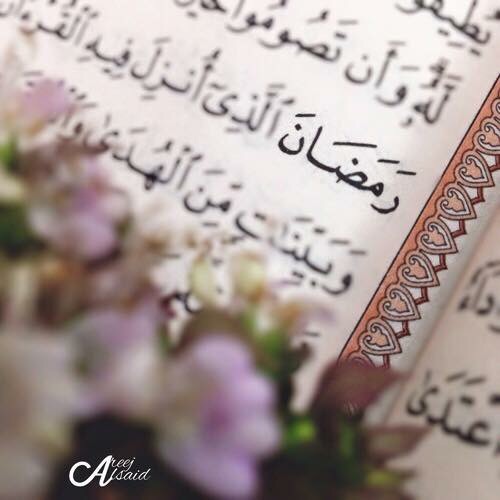 يُطِيقُو
لَّهُۥ ۚ وَأَن تَصُومُوا۟ خَيْرٌ
رَمَضَانَ ٱلَّذِىٓ أُنزِلَ فِيهِ ٱلْقُرْءَانُ
وَبَيِّنَٰتٍ مِّنَ ٱلْهُدَىٰ
ٱعْتَدَىٰ
Areej
Alsaid